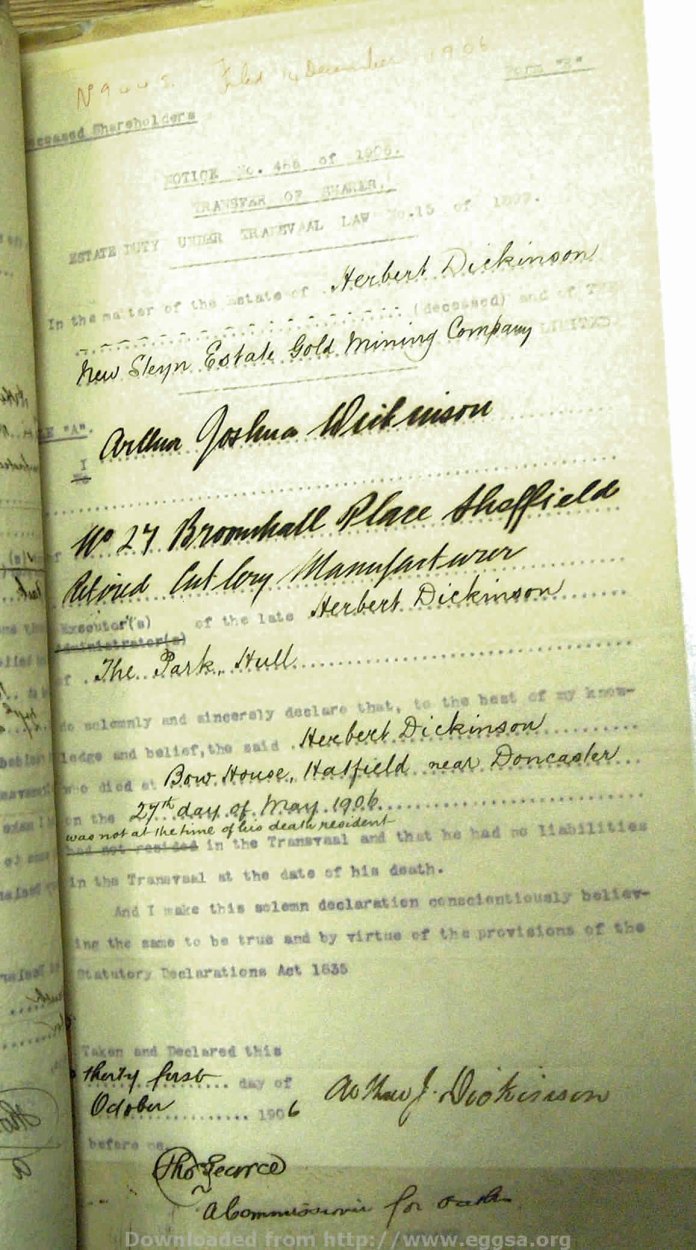 Filed 4 December 1906
Form "B"
Deceased Shareholders
NOTICE No. 466 of 1906.
TRANSFER OF SHARES.
ESTATE DUTY UNDER TRANSVAAL LAW No.15 of 1877.
In the matter of the Estate of Herbert Dickinson
(deceased) and of THE
New Steyn Estate Gold Mining Company LIMITED.
"A".
I Arthur Joshua Dickinson
of No 27 Broomhall Place Sheffield
Retired Cutlery Manufacturer
Executor(s) of the late Herbert Dickinson
Administrator(s)
of The Park, Hull
do solemnly and sincerely declare that, to the best of my know-
ledge and belief, the said Herbert Dickinson
who died at Bow House, Hatfield near Doncaster
on the 27th day of May 1906
was not at the time of his death resident
had not resided in the Transvaal and that he had no liabilities
in the Transvaal at the date of his death.
And I make this solemn declaration conscientiously believ-
ing the same to be true and by virtue of the provisions of the
Statutory Declarations Act 1835
Taken and Declared this
thirty first day of
October 1906
Arthur J. Dickinson
before me
Thos Pearce
A Commissioner for oaths
Downloaded from http://www.eggsa.org